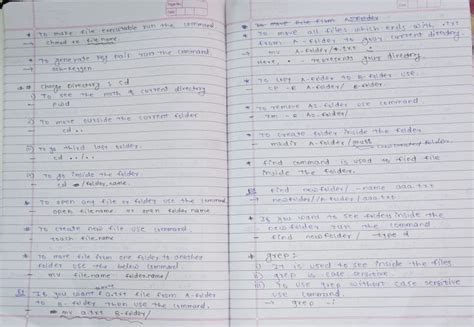 * To make file executable run the command
→ chmod +x file_name
* To generate key pair run the command
→ ssh-keygen
* Change Directory : cd
i) To see the path of current directory
→ pwd
ii) To move outside the current folder
→ cd ..
iii) To go third last folder.
cd ../..
iv) To go inside the folder
cd /folder_name.
* To open any file or folder use the command
→ open file_name or open folder name
* To create new file use command
→ touch file_name
* To move file from one folder to another
folder use the below command.
→ mv file_name folder_name/
If you want a.txt file from A-folder
to B-folder then use the command.
→ mv a.txt B-folder/
* To move all files which ends with .txt
from A-folder to your current directory.
→ mv A-folder/*.txt .
Here, . represents your directory.
* To copy A-folder to B-folder use.
→ cp -R A-folder/ B-folder.
* To remove folder use command.
→ rm -R A-folder/
* To create folder inside the folder.
→ mkdir A-folder/
* find command is used to find file
inside the folder.
find newfolder/ -name aaa.txt
→ newfolder//B-folder/aaa.txt
* If you want to see folder inside the
newfolder run the command
→ find newfolder/ -type d
* grep :
i) It is used to see inside the files
ii) grep is case sensitive.
iii) To use grep without case sensitive
use command.
→ grep -i